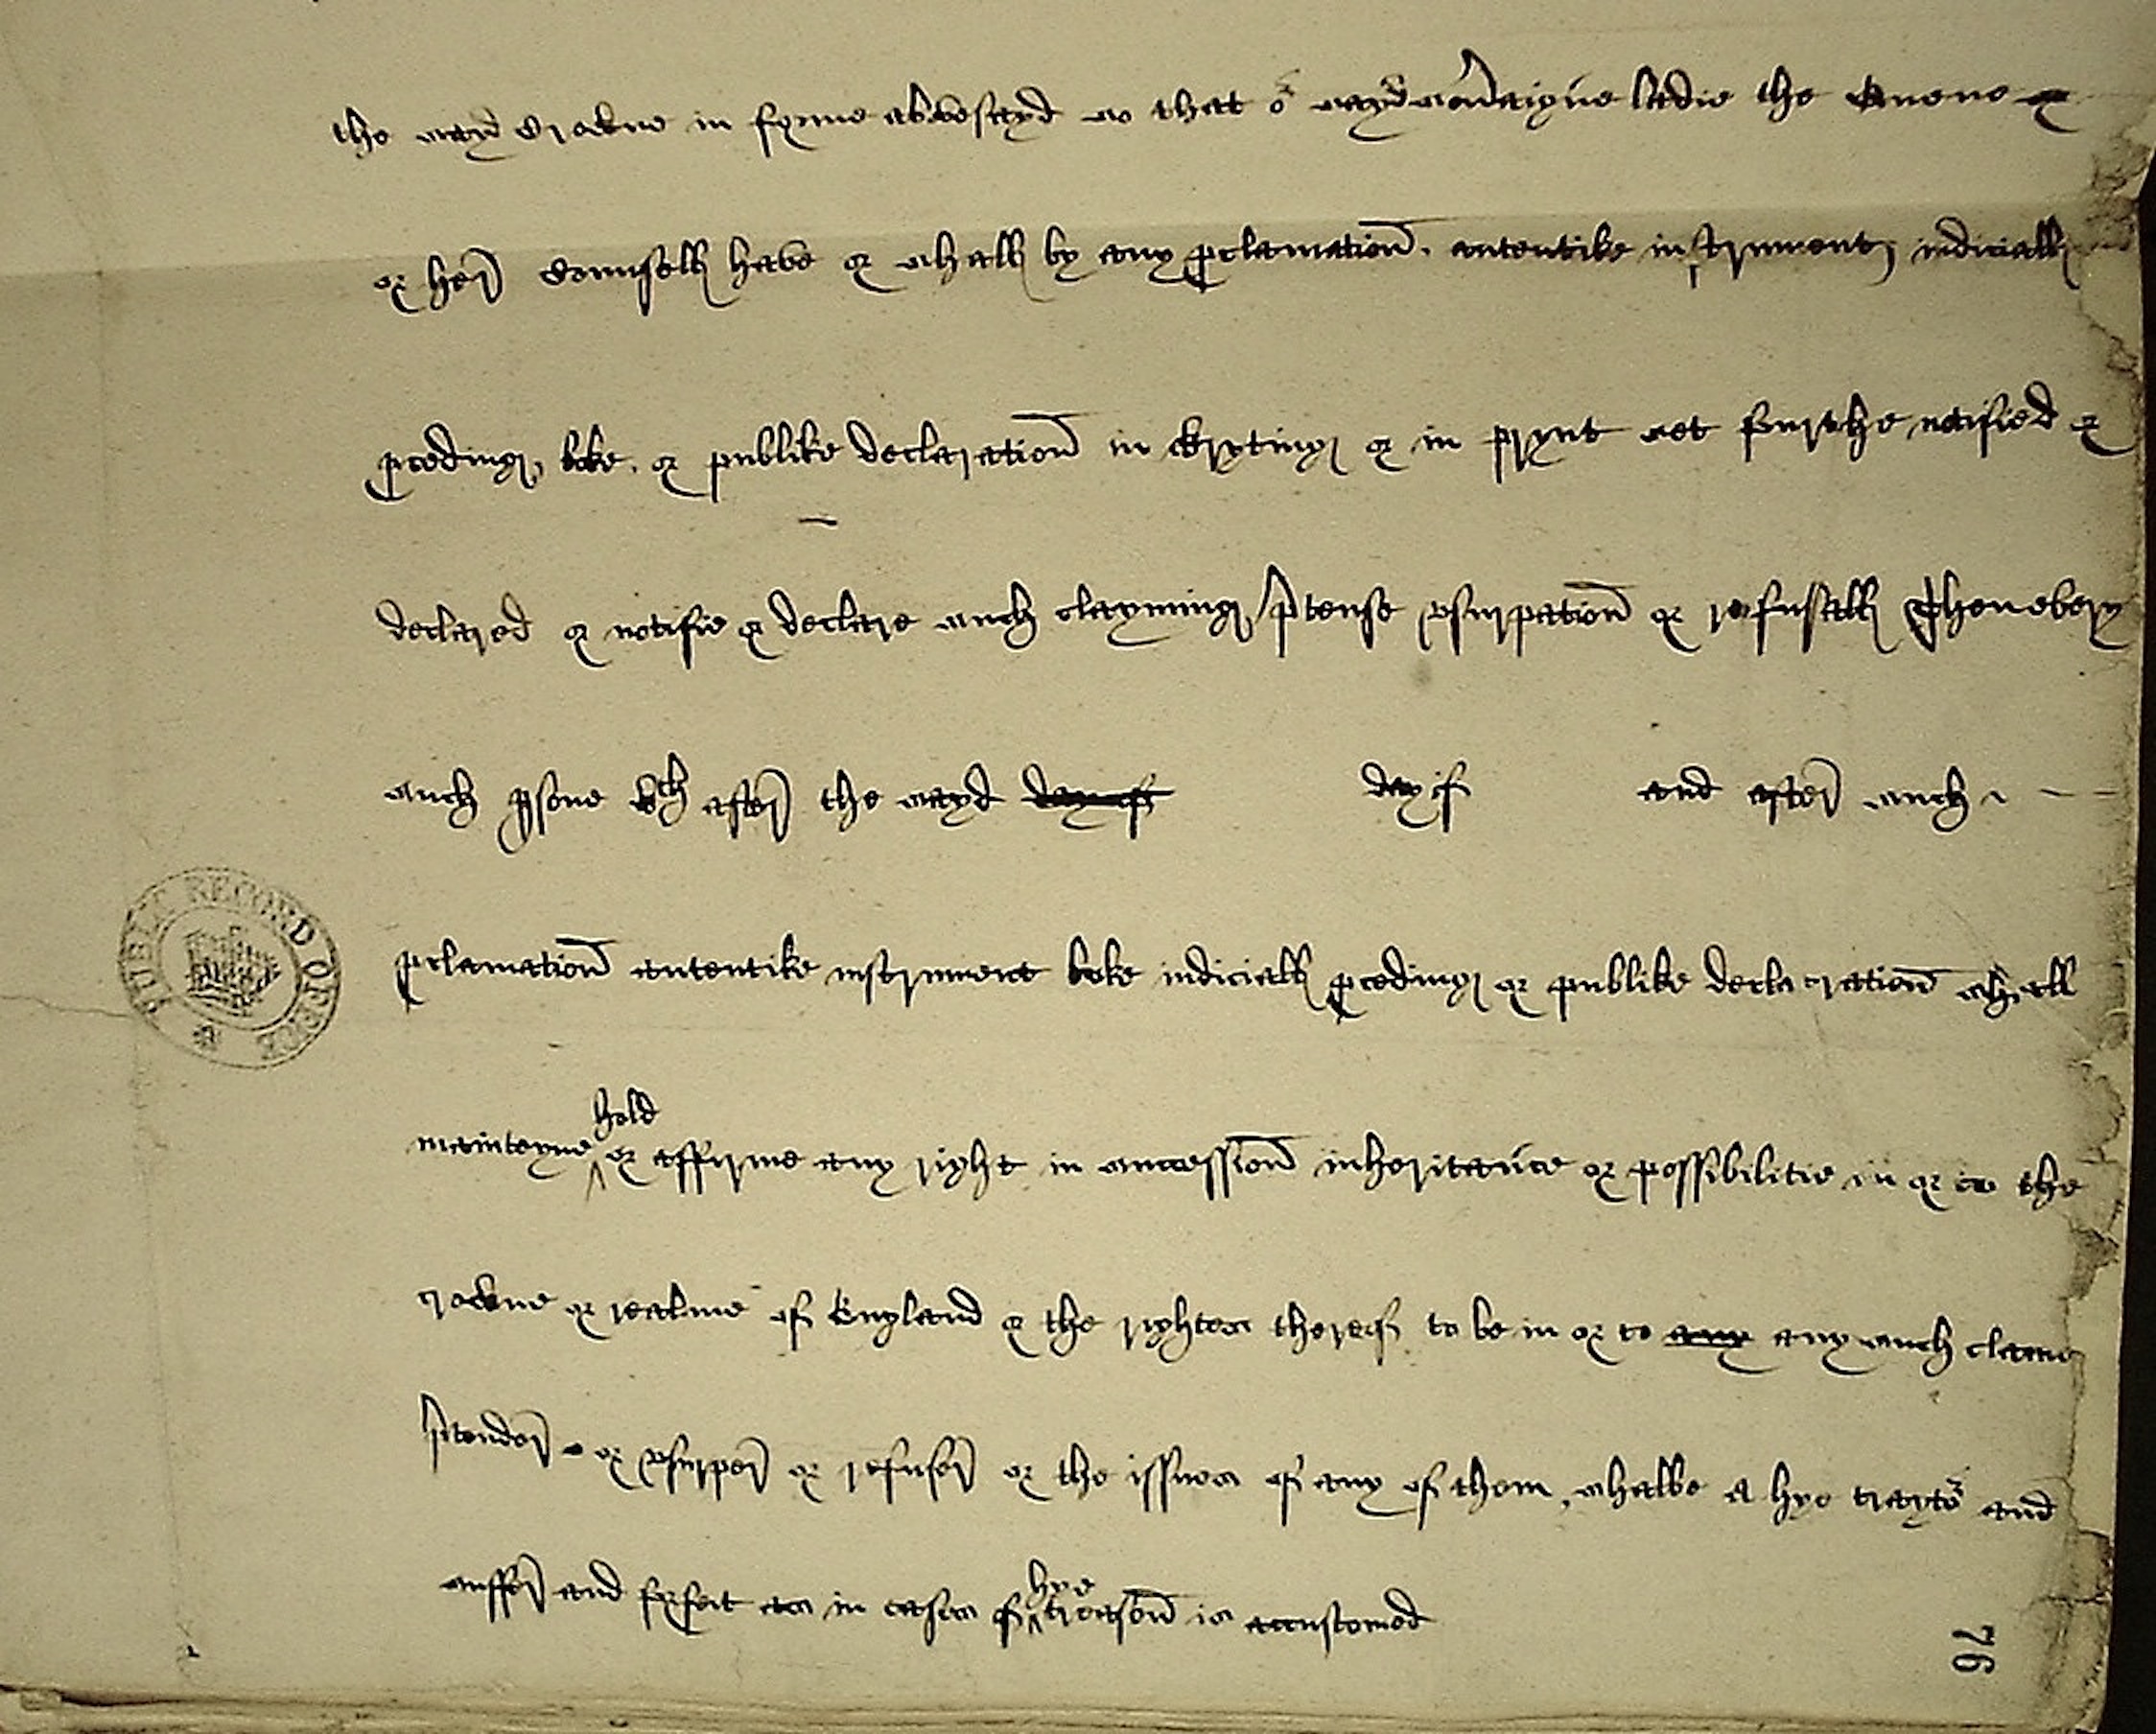 the sayd Crowne in fo͞rme aboveſayd so that oʳ sayd sov͛aigne ladie the Quene
or her counſell have or shall by any ꝓclamation autentike inſtrument judiciall
ꝓceding, boke, or publike declaration in wryting or in prynt set fourthe notified or
declared or notifie or declare such clayming p͛tenſe vſurpation or refuſall Then every
such ꝑſone wᶜh after the sayd day of day of and after such
ꝓclamation autentike inſtrument boke judiciall ꝓceding or publike declaration shall
mainteyne hold or affirme any right in succeſſion inheritaunce or poſſibilitie in or to the
crowne or realme of England or the rightes thereof to be in or to any any such claime
p͛tender or vſurper or refuſer or the iſſues of any of them, shalbe a hye traytoʳ and
suffer and forfeit as in caſes of hye treaſon is accuſtomed
PUBLIC RECORD OFFICE
76